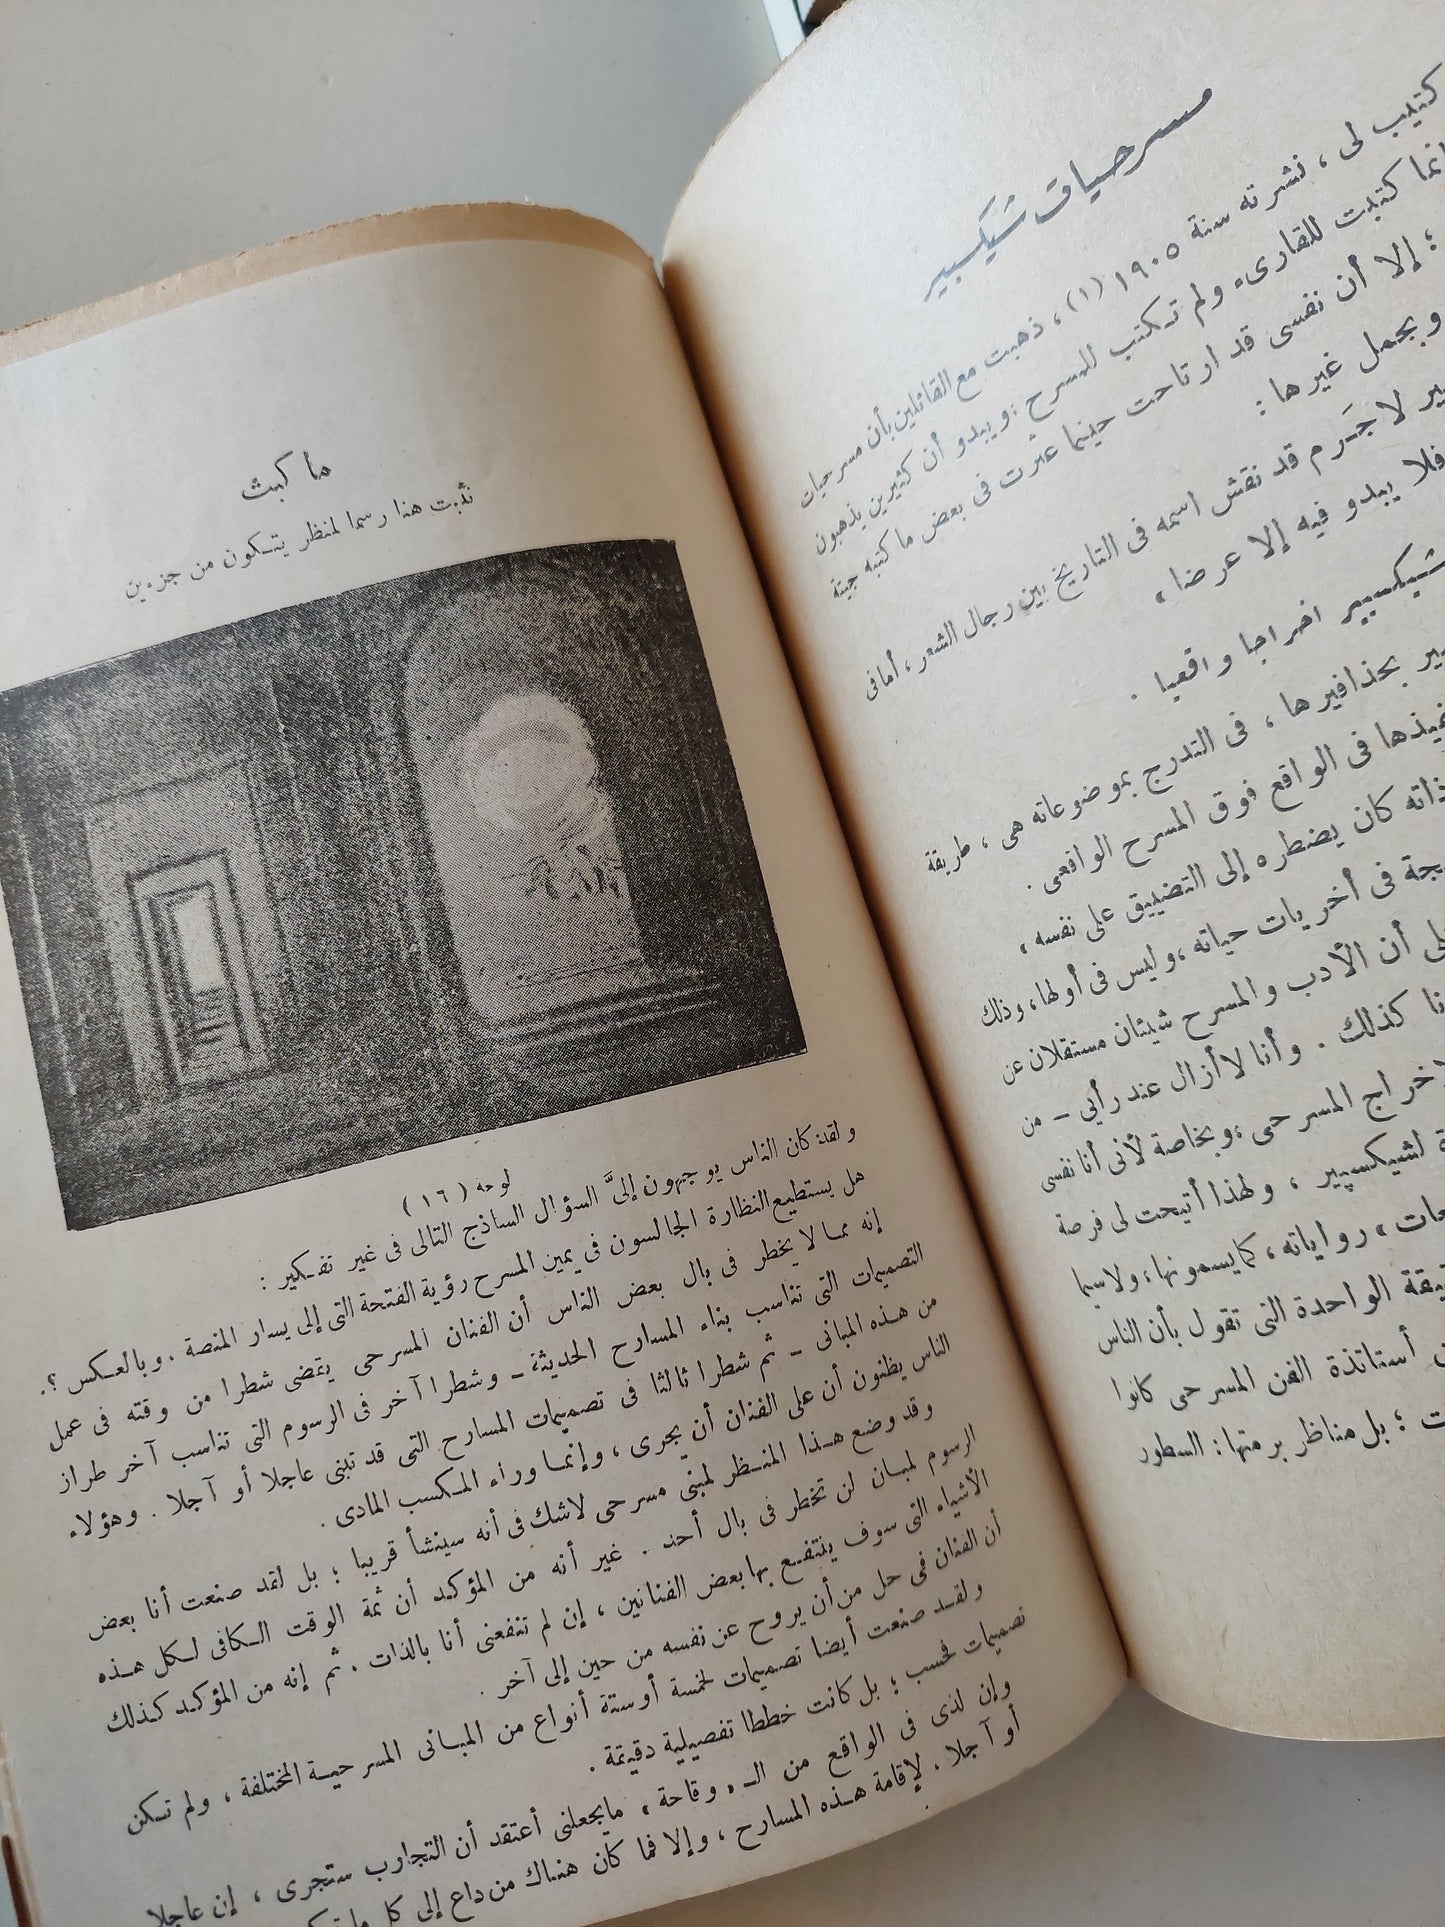 مسرحيات شيكسبير
كتيب لى ، نشرته سنة ١٩٠٥ (١) ، ذهبت مع القائلين بأن مسرحيات
إنما كتبت للقارىء ولم تكتب للمسرح ؛ ويبدو أن كثيرين يذهبون
؛ إلا أن نفسى قد ارتاحت حينما عثرت فى بعض ما كتبه جيتة
وبجمل غيرها :
لا جَرم قد نقش اسمه فى التاريخ بين رجال الشعر ، أما فى
فلا يبدو فيه إلا عرضا »
شيكسبير اخراجا واقعيا .
بحذافيرها ، فى التدرج بموضوعاته هى ، طريقة
فى الواقع فوق المسرح الواقعى .
ذاته كان يضطره إلى التضييق على نفسه ،
فى أخريات حياته ، وليس فى أولها ، وذلك
أن الأدب والمسرح شيئان مستقلان عن
كذلك . وأنا لا أزال عند رأيى – من
المسرحى ، وبخاصة لأنى أنا نفسى
لشيكسپير ، ولهذا أتيحت لى فرصة
رواياته ، كما يسمونها ، ولاسيما
الواحدة التى تقول بأن الناس
أستاتذة الفن المسرحى كانوا
؛ بل مناظر برمتها : السطور
ماكبث
نثبت هذا رسما لمنظر يتكون من جزءين
لوحه ( ١٦ )
ولقد كان الناس يوجهون إلىَّ السؤال الساذج التالى فى غير تفكير :
هل يستطيع النظارة الجالسون فى يمين المسرح رؤية الفتحة التى إلى يسار المنصة . وبالعكس ؟.
إنه مما لا يخطر فى بال بعض الناس أن الفنان المسرحى يقضى شطرا من وقته فى عمل
التصميمات التى تناسب بناء المسارح الحديثة – وشطرا آخر فى الرسوم التى تناسب آخر طراز
من هذه المبانى – ثم شطرا ثالثا فى تصميمات المسارح التى قد تبنى عاجلا أو آجلا . وهؤلاء
الناس يظنون أن على الفنان أن يجرى ، وإنما وراء المكسب المادى .
وقد وضع هذا المنظر لمبنى مسرحى لاشك فى أنه سينشأ قريبا ؛ بل لقد صنعت أنا بعض
الرسوم لمبان لن تخطر فى بال أحد . غير أنه من المؤكد أن ثمة الوقت الكافى لكل هذه
الأشياء التى سوف ينتفع بها بعض الفنانين ، إن لم تنفعنى أنا بالذات . ثم إنه من المؤكد كذلك
أن الفنان فى حل من أن يروح عن نفسه من حين إلى آخر .
ولقد صنعت أيضا تصميمات لخمسة أو ستة أنواع من المبانى المسرحية المختلفة ، ولم تكن
تصميمات فحسب ؛ بل كانت خططا تفصيلية دقيقة .
وإن لدى فى الواقع من الـ « وقاحة » ما يجعلنى أعتقد أن التجارب ستجرى ، إن عاجلا
أو آجلا ، لإقامة هذه المسارح ، وإلا فما كان هناك من داع إلى كل